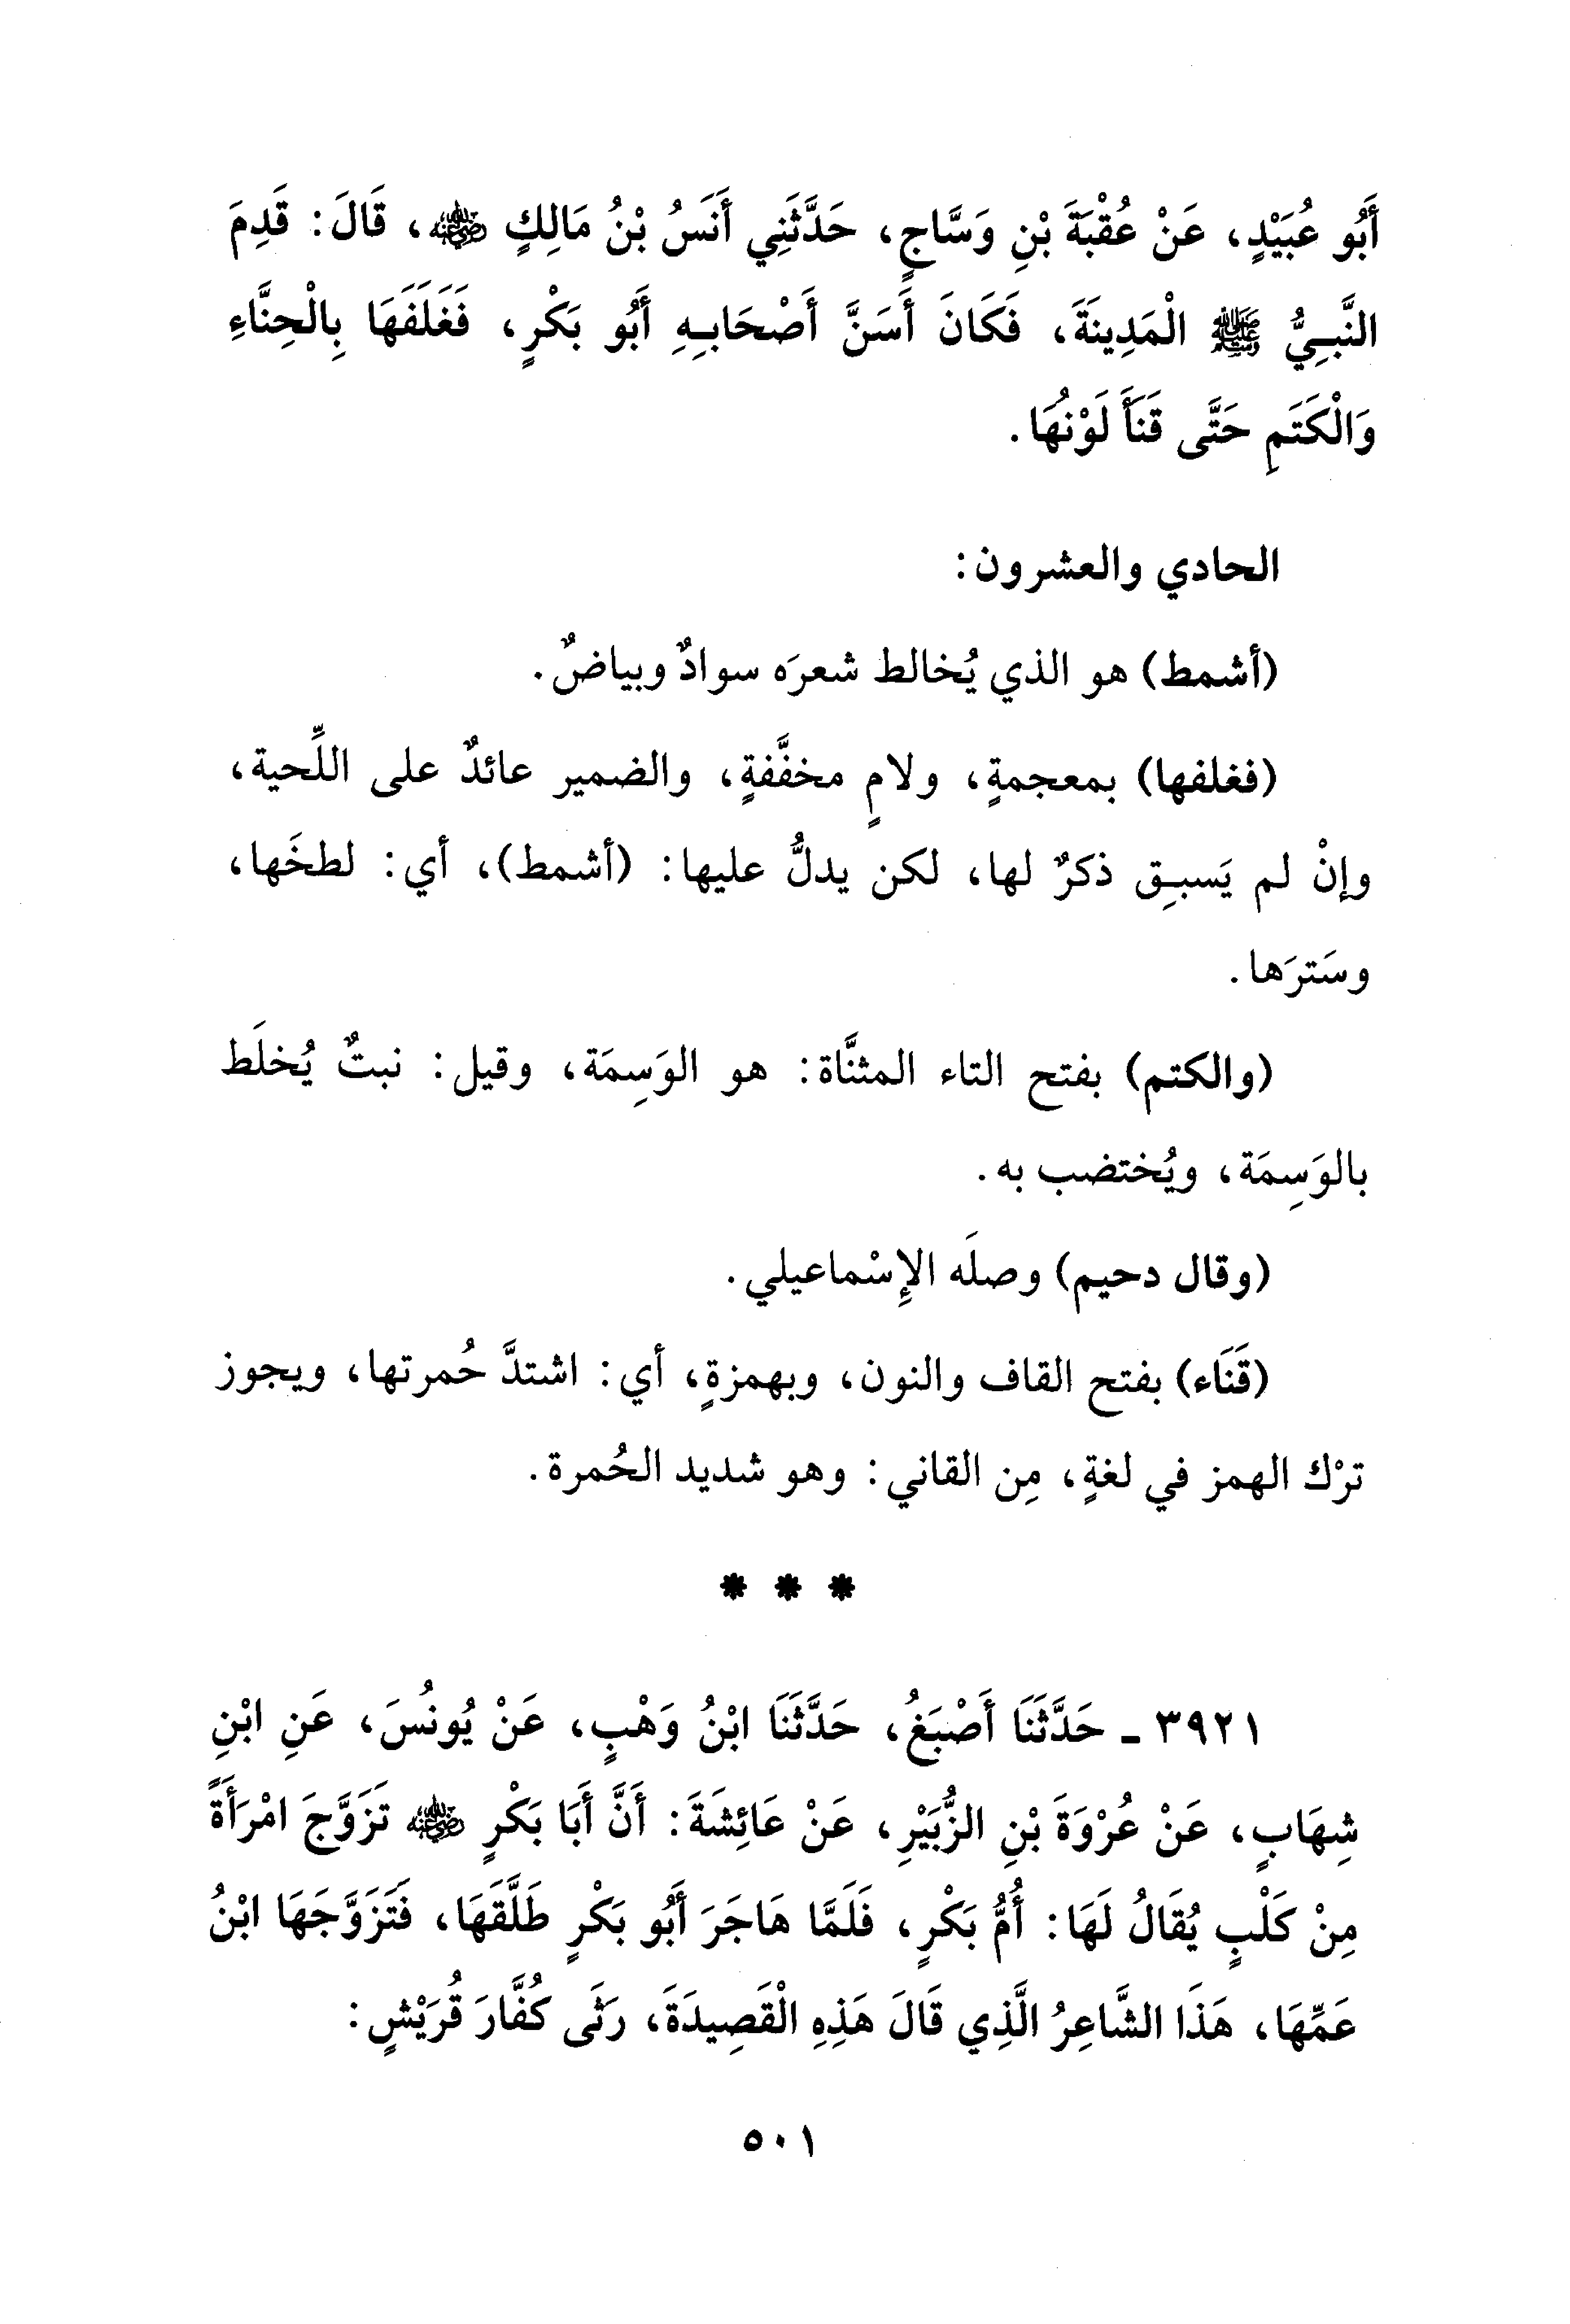 أَبُو عُبَيْدٍ، عَنْ عُقْبَةَ بْنِ وَسَّاجٍ، حَدَّثَنِي أَنَسُ بْنُ مَالِكٍ ﵁، قَالَ: قَدِمَ
النَّبِيُّ ﷺ الْمَدِينَةَ، فَكَانَ أَسَنَّ أَصْحَابِهِ أَبُو بَكْرٍ، فَغَلَفَهَا بِالْحِنَّاءِ
وَالْكَتَمِ حَتَّى قَنَأَ لَوْنُهَا.
الحادي والعشرون:
(أشمط) هو الذي يُخالط شعرَه سوادٌ وبياضٌ.
(فغلفها) بمعجمةٍ، ولامٍ مخفَّفةٍ، والضمير عائدٌ على اللِّحية،
وإنْ لم يَسبِق ذكرٌ لها، لكن يدلُّ عليها: (أشمط)، أي: لطخَها،
وسَترَها.
(والكتم) بفتح التاء المثنَّاة: هو الوَسِمَة، وقيل: نبتٌ يُخلَط
بالوَسِمَة، ويُختضب به.
(وقال دحيم) وصلَه الإِسْماعيلي.
(قَنَاء) بفتح القاف والنون، وبهمزةٍ، أي: اشتدَّ حُمرتها، ويجوز
ترْك الهمز في لغةٍ، مِن القاني: وهو شديد الحُمرة.
* * *
٣٩٢١ ـ حَدَّثَنَا أَصْبَغُ، حَدَّثَنَا ابْنُ وَهْبٍ، عَنْ يُونُسَ، عَنِ ابْنِ
شِهَابٍ، عَنْ عُرْوَةَ بْنِ الزُّبَيْرِ، عَنْ عَائِشَةَ: أَنَّ أَبَا بَكْرٍ ﵁ تَزَوَّجَ امْرَأَةً
مِنْ كَلْبٍ يُقَالُ لَهَا: أُمُّ بَكْرٍ، فَلَمَّا هَاجَرَ أَبُو بَكْرٍ طَلَّقَهَا، فَتَزَوَّجَهَا ابْنُ
عَمِّهَا، هَذَا الشَّاعِرُ الَّذِي قَالَ هَذِهِ الْقَصِيدَةَ، رَثَى كُفَّارَ قُرَيْشٍ:
٥٠١